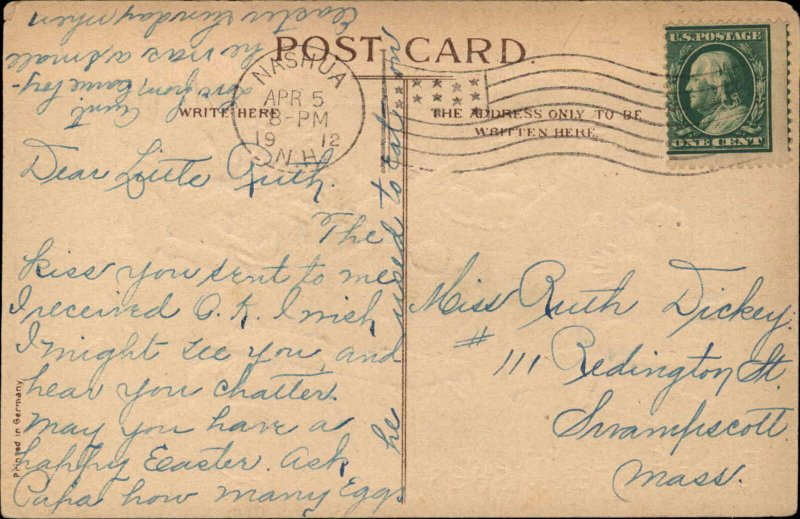 POST CARD.
WRITE HERE
THE ADDRESS ONLY TO BE
WRITTEN HERE.
NASHUA
APR 5
8-PM
19 12
N.H.
U.S. POSTAGE
ONE CENT
Dear Little Ruth.
The
kiss you sent to me
I received O.K. I wish
I might see you, and
hear you chatter.
May you have a
happy Easter. Ask
Papa how many Eggs
he used to eat on
Easter Sunday when
he was a small
boy.
Love from
Aunt
Miss Ruth Dickey.
# 111 Redington St.
Swampscott
Mass.
Printed in Germany